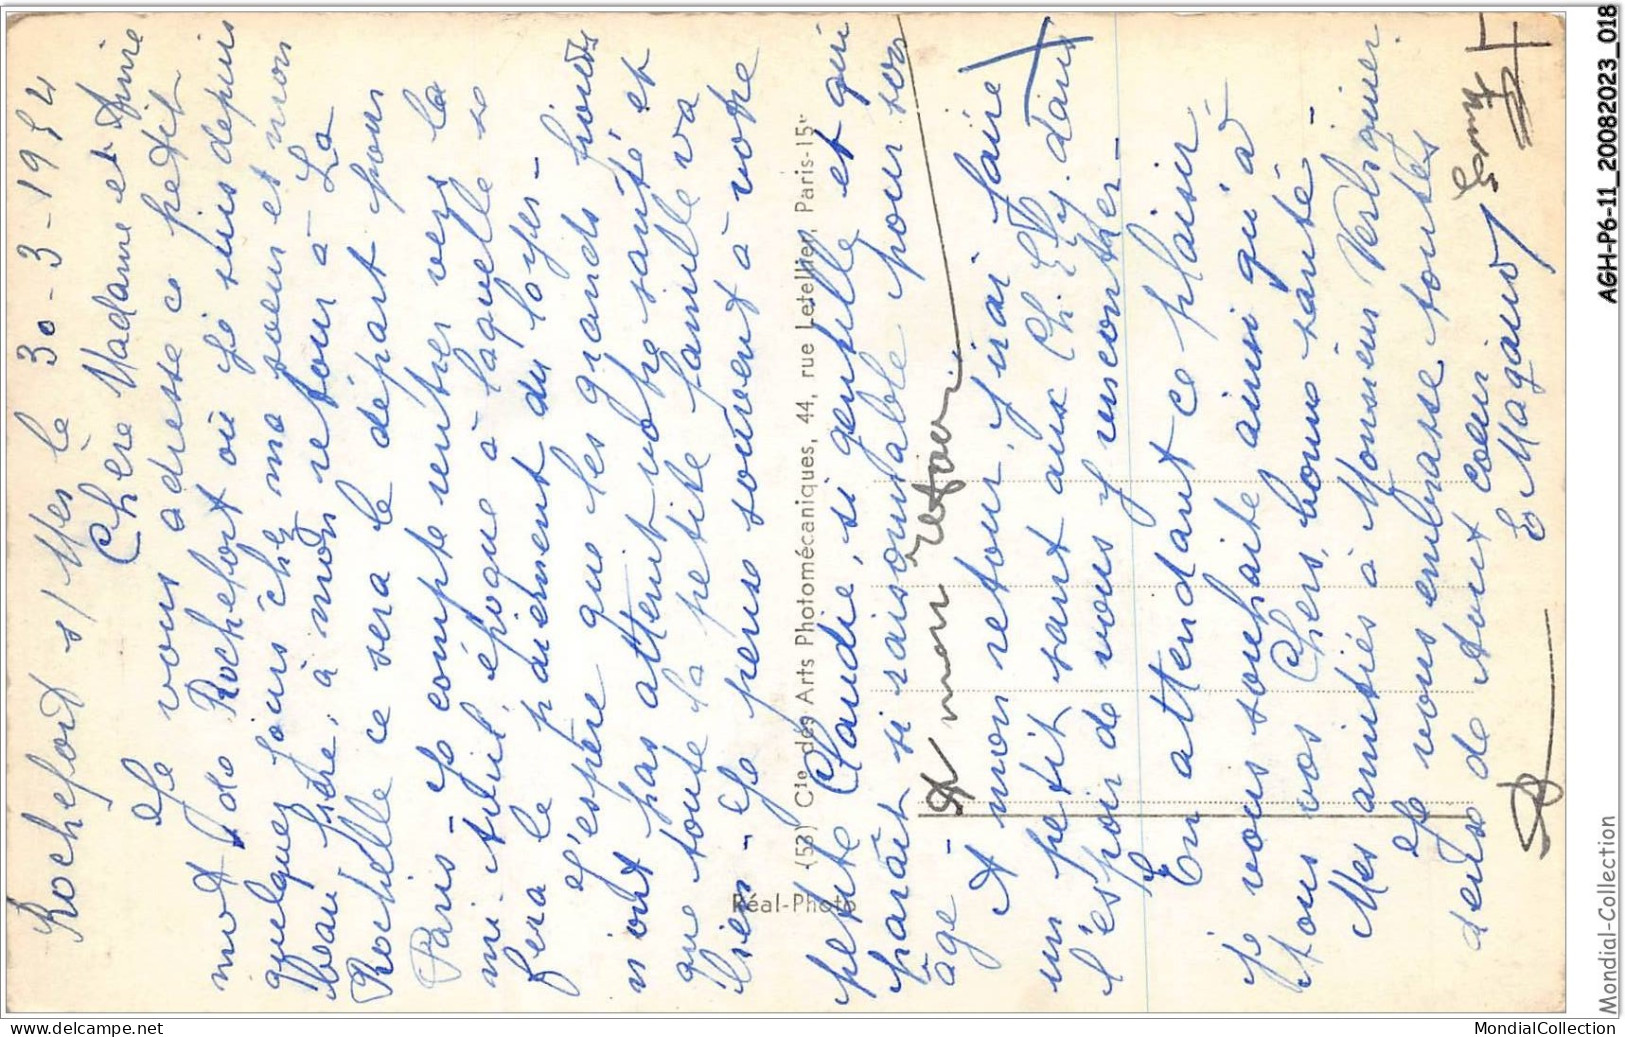 Rochefort s/Mer le 30-3-1954
Chère Madame et Amie
Je vous adresse ce petit
mot de Rochefort où je suis depuis
quelques jours chez ma soeur et mon
beau frère, à mon retour à La
Rochelle ce sera le départ pour
Paris - Je compte rentrer vers la
mi-Avril, époque à laquelle se
fera le paiement du loyer -
J'espère que les grands froids
n'ont pas atteint votre santé et
que toute la petite famille va
bien - Je pense souvent à votre
petite Claudie, si gentille et qui
paraît si raisonnable pour son
âge -
A mon retour
A mon retour, j'irai faire
un petit saut aux Ch. Ely. dans
l'espoir de vous y rencontrer -
En attendant ce plaisir
je vous souhaite ainsi qu'à
tous vos Chers, bonne santé -
Mes amitiés à Monsieur
Je vous embrasse toutes
deux de tout coeur
E Maganot
Réal-Photo
(53) Cie des Arts Photomécaniques, 44, rue Letellier, Paris-15e
AGH-P6-11_20082023_018
Mondial-Collection
https://www.delcampe.net
MondialCollection